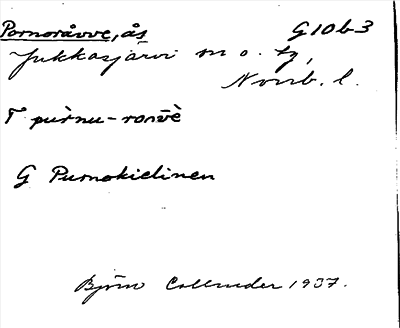 Pornoråvve, ås G10b3
Jukkasjärvi sn o. tg,
Norrb. l.
T purnu-ronvè
G Purnokielinen
Björn Collinder 1937.